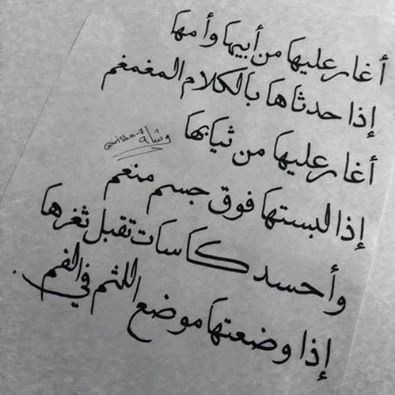 أغار عليها من أبيها وأمها
إذا حدثاها بالكلام المغمغم
أغار عليها من ثيابها
إذا لبستها فوق جسم منعم
وأحسد كاسات تقبل ثغرها
إذا وضعتها موضع اللثم في الفم.